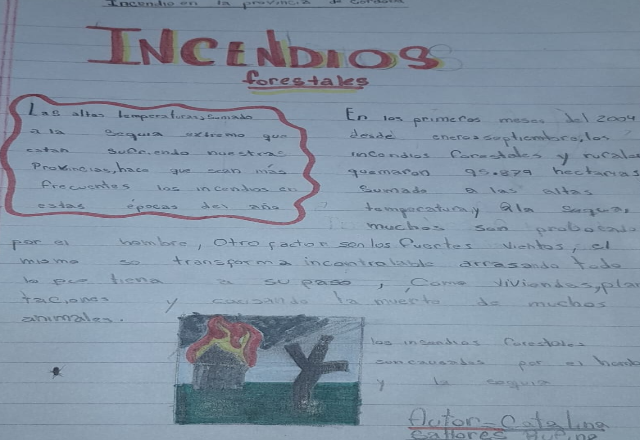 Incendio en la provincia de Cordoba
INCENDIOS
forestales
Las altas temperaturas, sumado
a la sequia extrema que
estan sufriendo nuestras
Provincias, hace que sean mas
frecuentes los incendios en
estas épocas del año
En los primeros meses del 2009
desde enero a septiembre, los
incendios forestales y rurales
quemaron 95.879 hectarias
Sumado a las altas
temperatura y a la sequia,
muchos son probocado
por el hombre, Otro factor son los fuertes vientos, el
mismo se transforma incontrolable arrasando todo
lo que tiene a su paso, Como viviendas, plan
taciones y causando la muerte de muchos
animales.
los insendios forestales
son causados por el hombre
y la sequia
Autor - Catalina